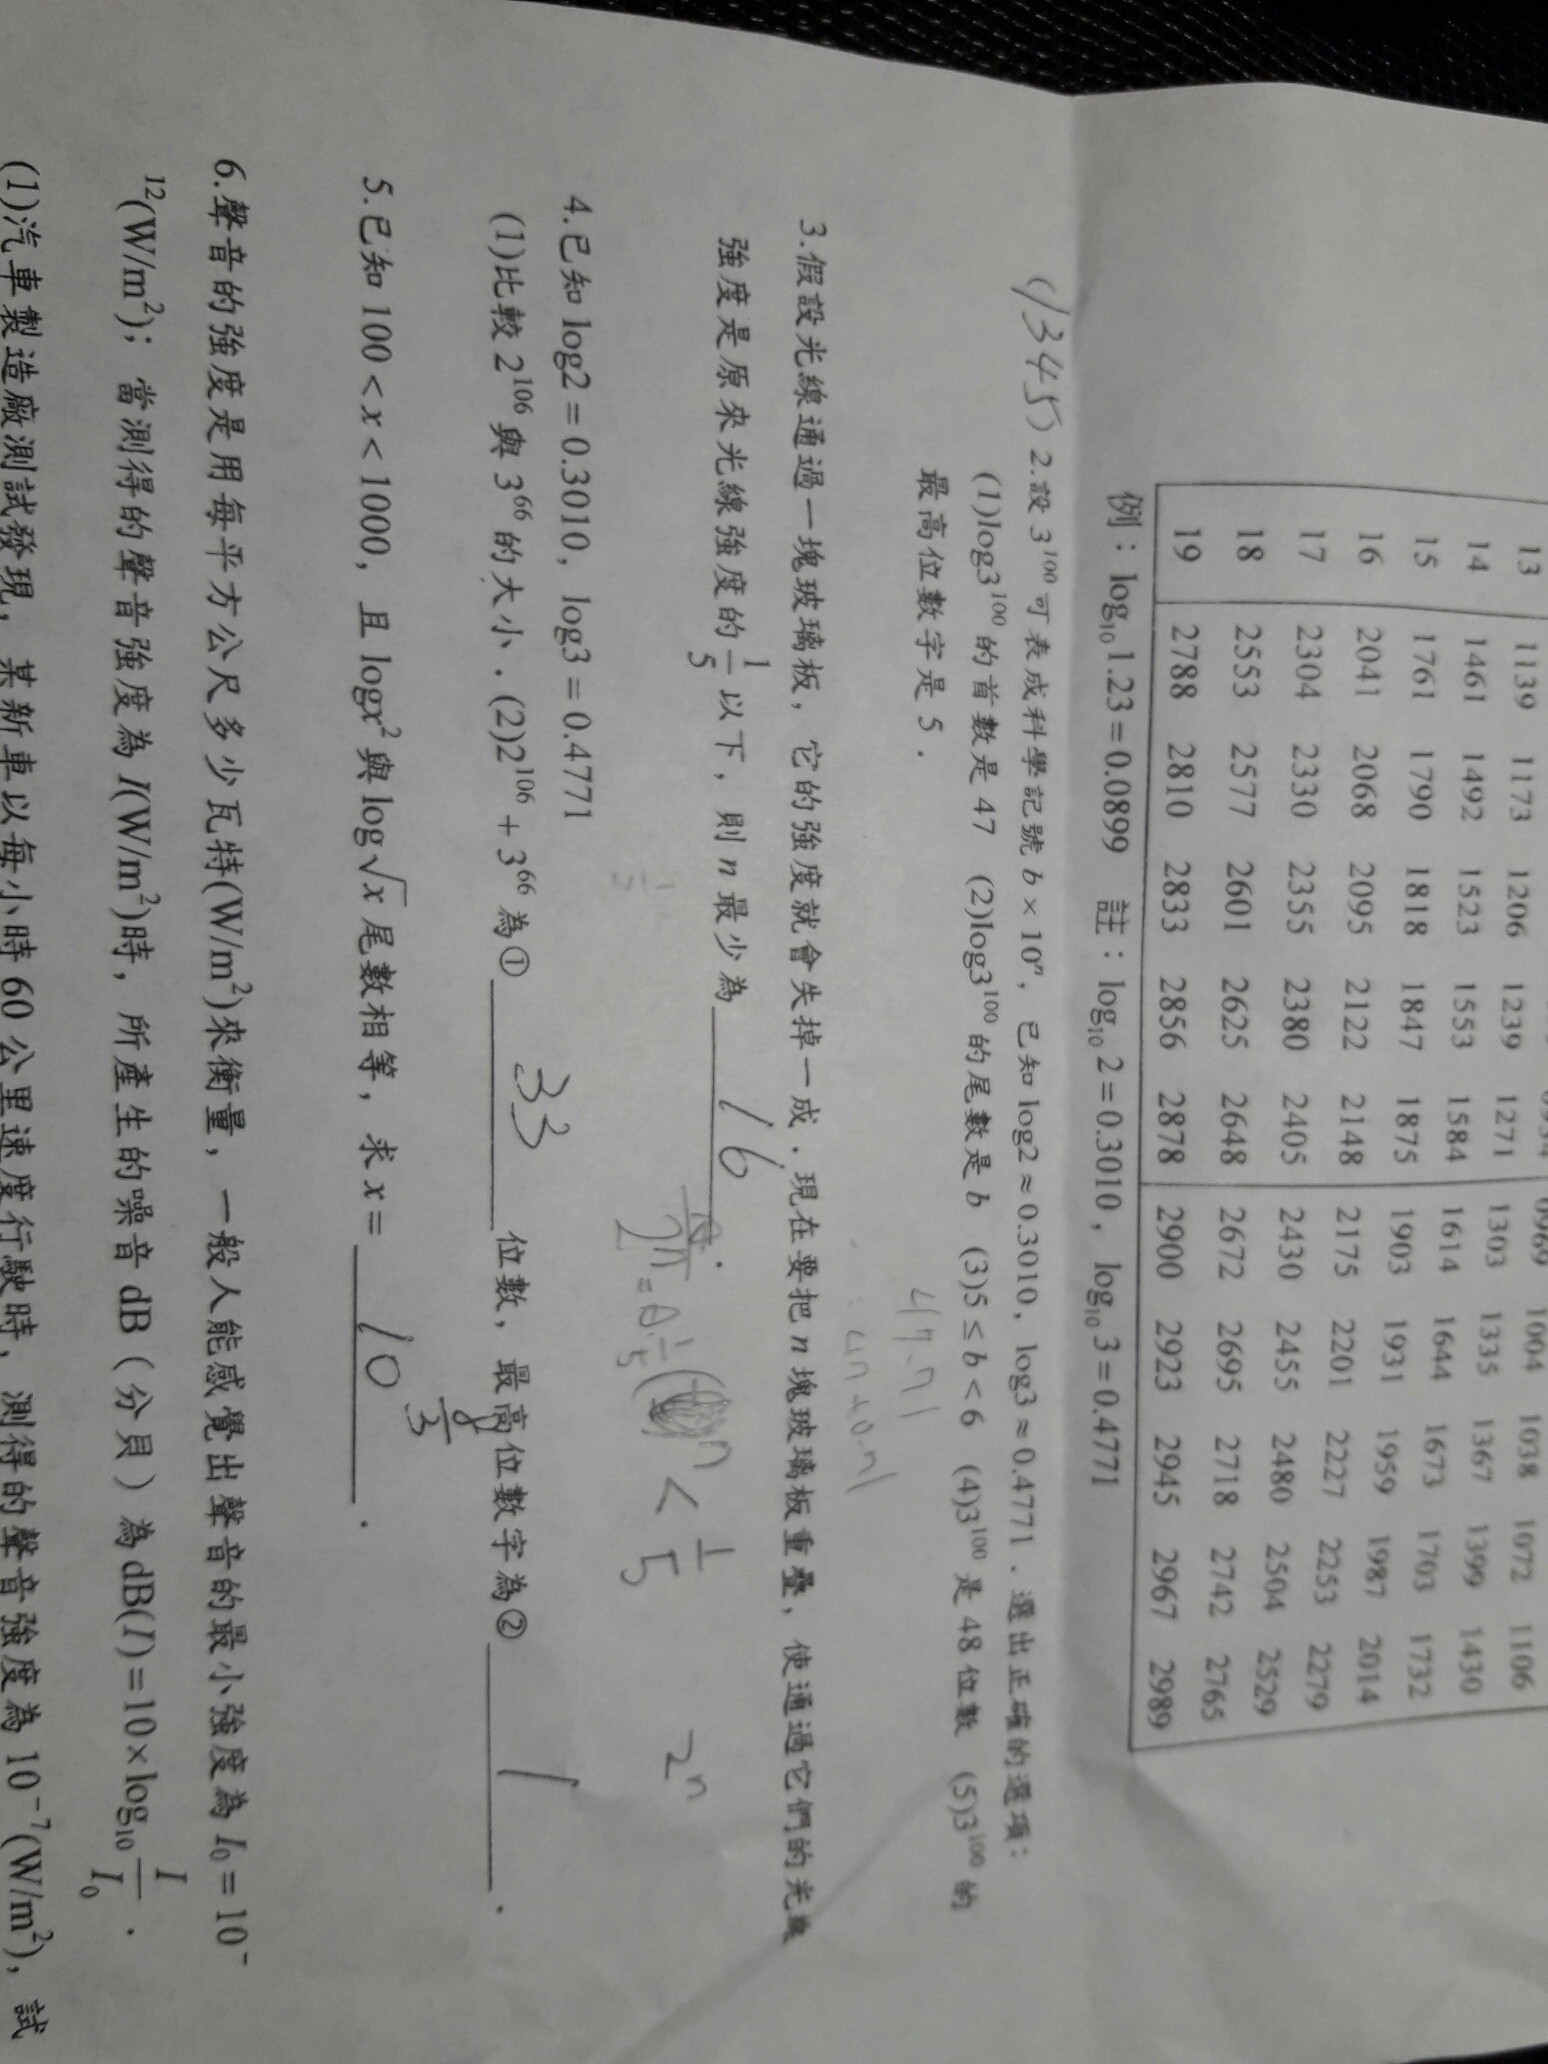 13 1139 1173 1206 1239 1271 1303 1335 1367 1399 1430
14 1461 1492 1523 1553 1584 1614 1644 1673 1703 1732
15 1761 1790 1818 1847 1875 1903 1931 1959 1987 2014
16 2041 2068 2095 2122 2148 2175 2201 2227 2253 2279
17 2304 2330 2355 2380 2405 2430 2455 2480 2504 2529
18 2553 2577 2601 2625 2648 2672 2695 2718 2742 2765
19 2788 2810 2833 2856 2878 2900 2923 2945 2967 2989
例：log₁₀1.23=0.0899 註：log₁₀2=0.3010，log₁₀3=0.4771
(1345) 2.設 3¹⁰⁰ 可表成科學記號 b×10ⁿ，已知 log2≈0.3010，log3≈0.4771．選出正確的選項：
(1)log3¹⁰⁰ 的首數是 47 (2)log3¹⁰⁰ 的尾數是 b (3)5≤b<6 (4)3¹⁰⁰ 是 48 位數 (5)3¹⁰⁰ 的
最高位數字是 5．
47.71
3.假設光線通過一塊玻璃板，它的強度就會失掉一成．現在要把 n 塊玻璃板重疊，使通過它們的光線
強度是原來光線強度的 1/5 以下，則 n 最少為 16．
n < 1/5
2ⁿ
4.已知 log2=0.3010，log3=0.4771
(1)比較 2¹⁰⁶ 與 3⁶⁶ 的大小．(2)2¹⁰⁶+3⁶⁶ 為① 33 位數，最高位數字為② 1．
5.已知 100<x<1000，且 logx² 與 log√x 尾數相等，求 x= 10 8/3．
6.聲音的強度是用每平方公尺多少瓦特(W/m²)來衡量，一般人能感覺出聲音的最小強度為 I₀=10⁻
¹²(W/m²)；當測得的聲音強度為 I(W/m²)時，所產生的噪音 dB（分貝）為 dB(I)=10×log₁₀ I/I₀．
(1)汽車製造廠測試發現，某新車以每小時 60 公里速度行駛時，測得的聲音強度為 10⁻⁷(W/m²)，試